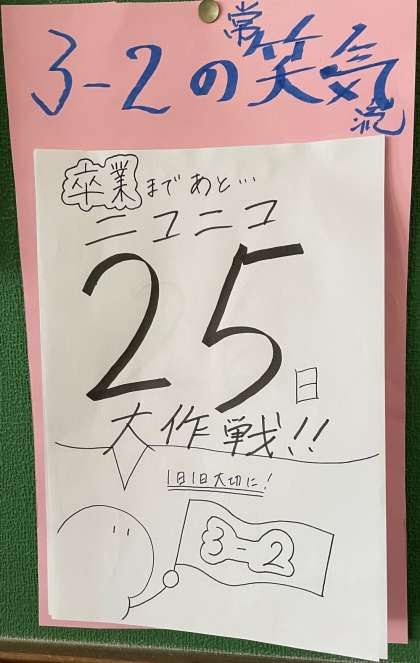 3-2の常笑気流
卒業まであと…
ニコニコ
25日
大作戦!!
1日1日大切に!
3-2